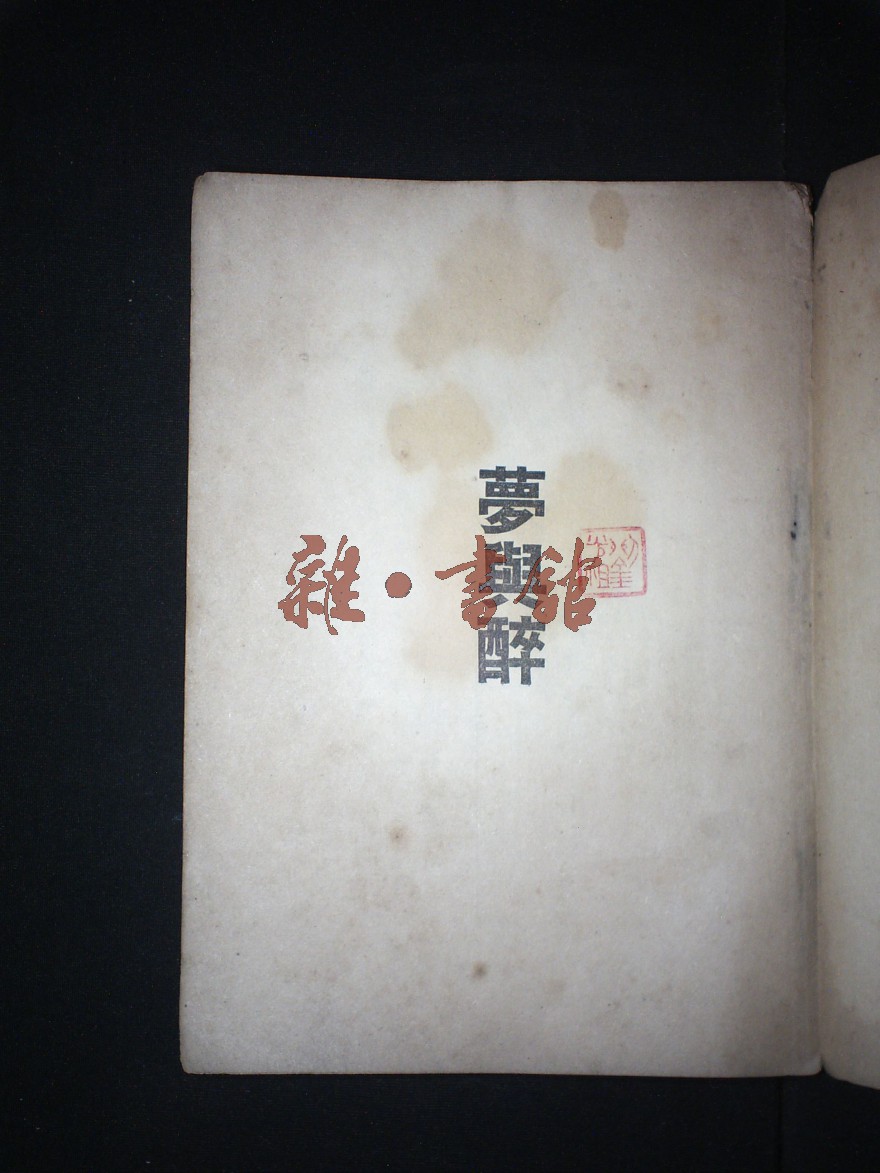 夢與醉
雜·書館